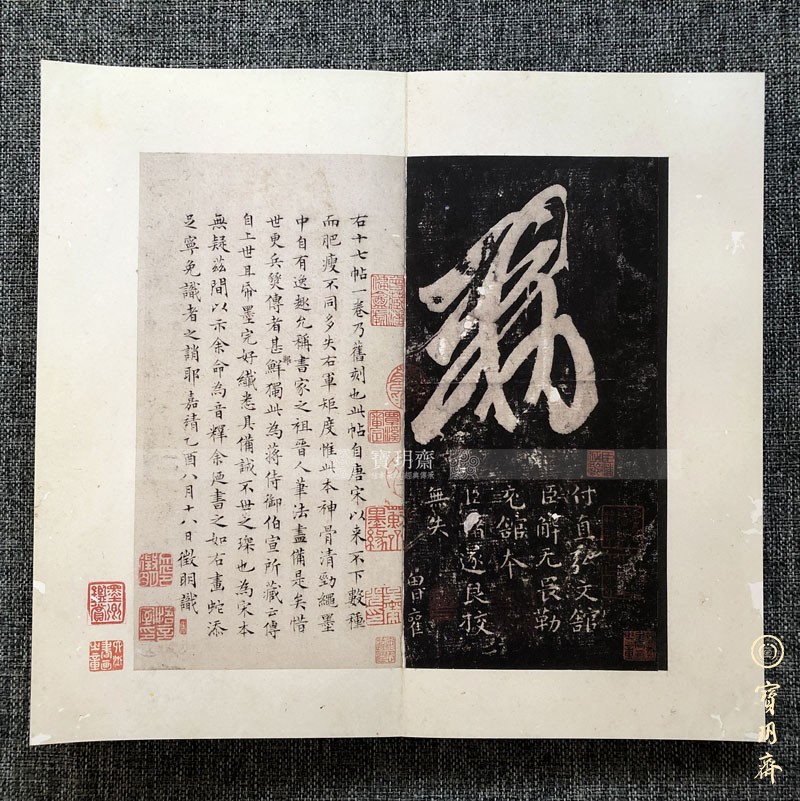 敕
付直弘文館
臣解无畏勒
充館本
臣褚遂良校
無失
右十七帖一卷乃舊刻也此帖自唐宋以来不下數種
而肥瘦不同多失右軍矩度惟此本神骨清勁繩墨
中自有逸趣允稱書家之祖晋人筆法盡備是矣惜
世更兵燹傳者甚鮮獨此為蔣侍御伯宣所藏云傳
自上世且帋墨完好纖悉具備誠不世之璨也為宋本
無疑茲間以示余命為音釋余廼書之如右畫蛇添
足寧免識者之誚耶嘉靖乙酉八月十八日徵明識
覃溪審定
寶玥齋
寶玥齋